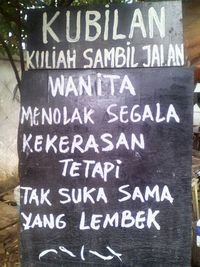 KUBILAN
KULIAH SAMBIL JALAN
WANITA
MENOLAK SEGALA
KEKERASAN
TETAPI
TAK SUKA SAMA
YANG LEMBEK